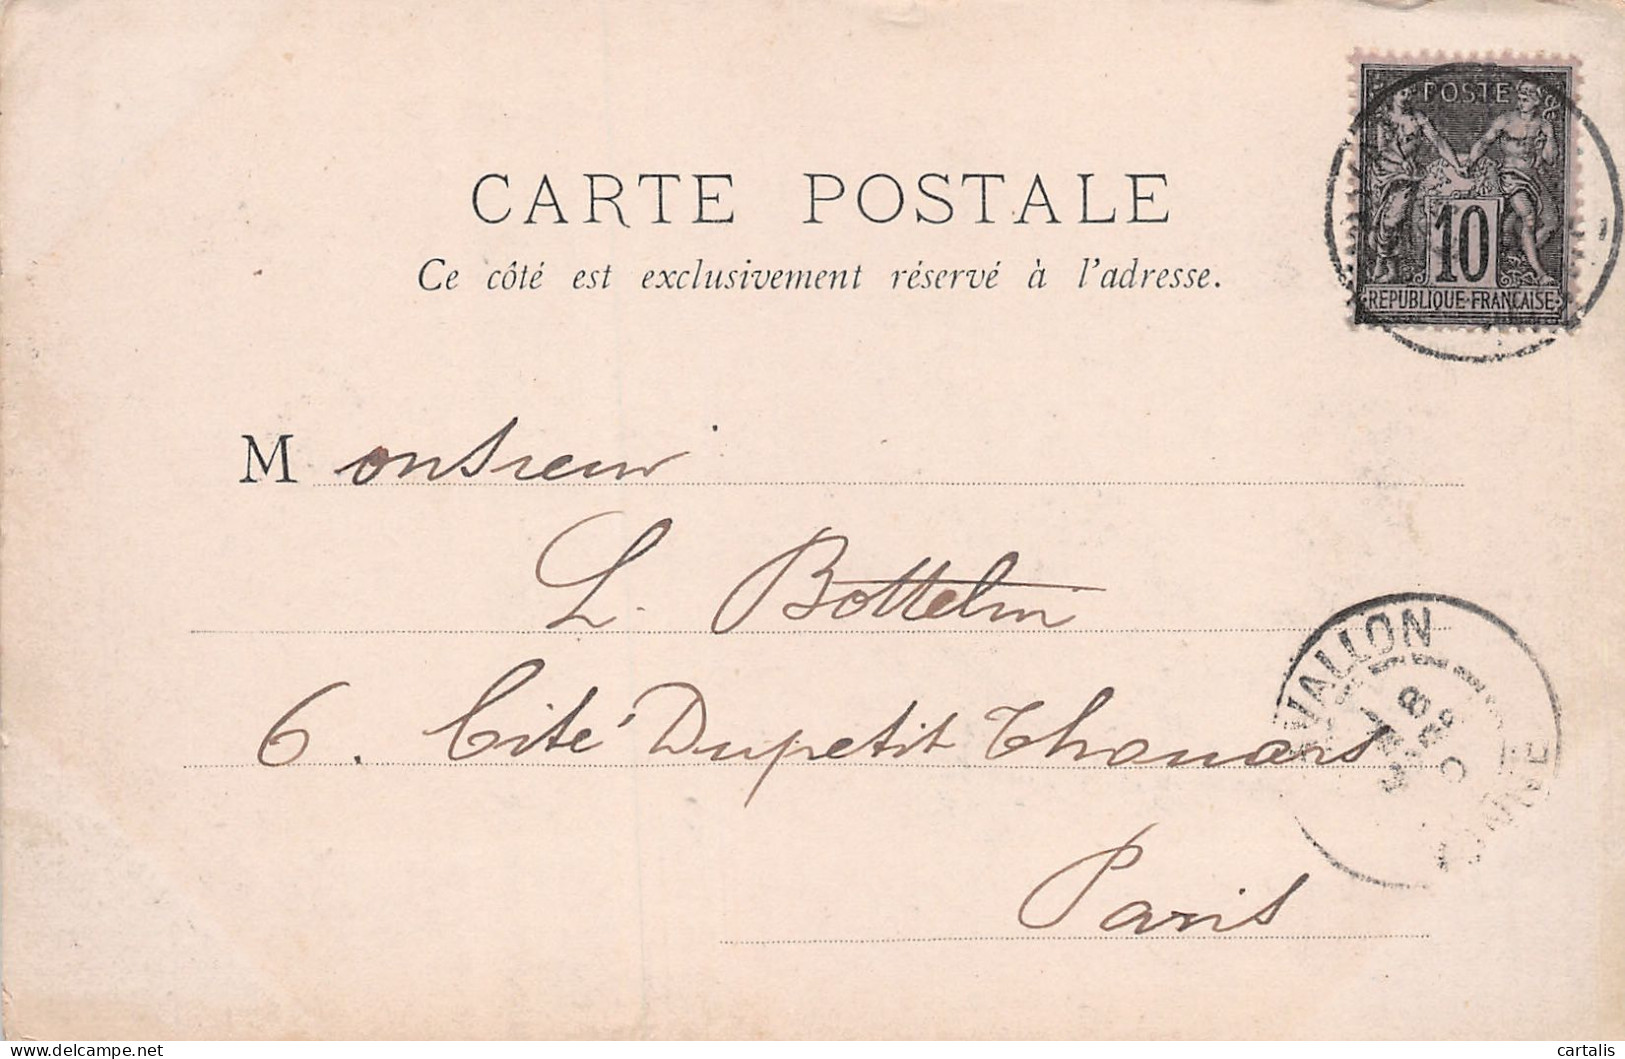 POSTE
10
REPUBLIQUE FRANÇAISE
CARTE POSTALE
Ce côté est exclusivement réservé à l'adresse.
Monsieur
L. Bottelin
6. Cité Dupetit Thouars
Paris
VALLON
8
delcampe.net
cartalis